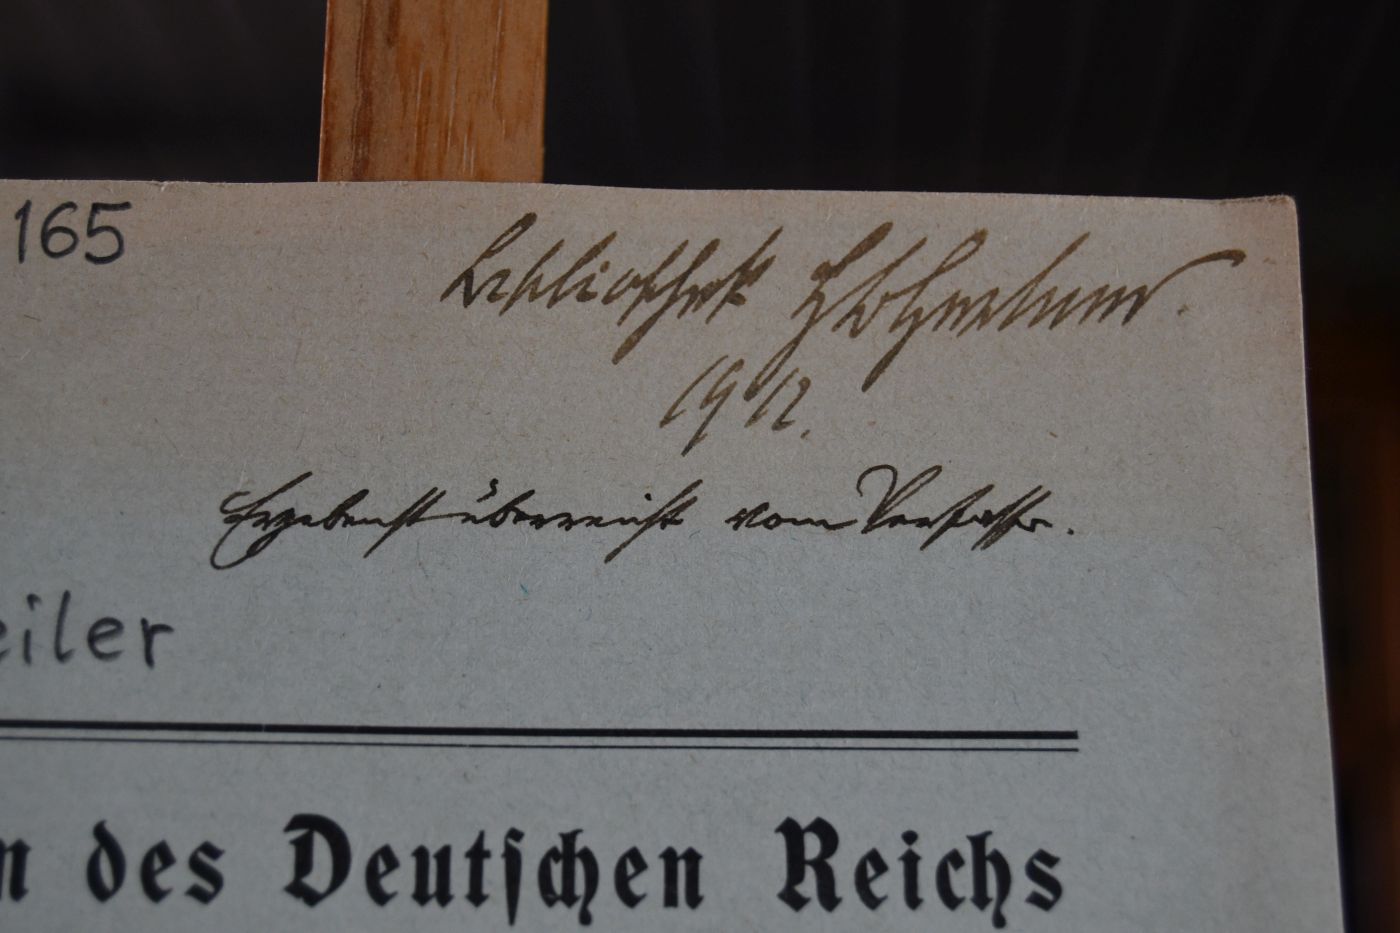 165
Bibliothek
1912.
Ergebenst überreicht vom Verfasser.
eiler
n des Deutſchen Reichs